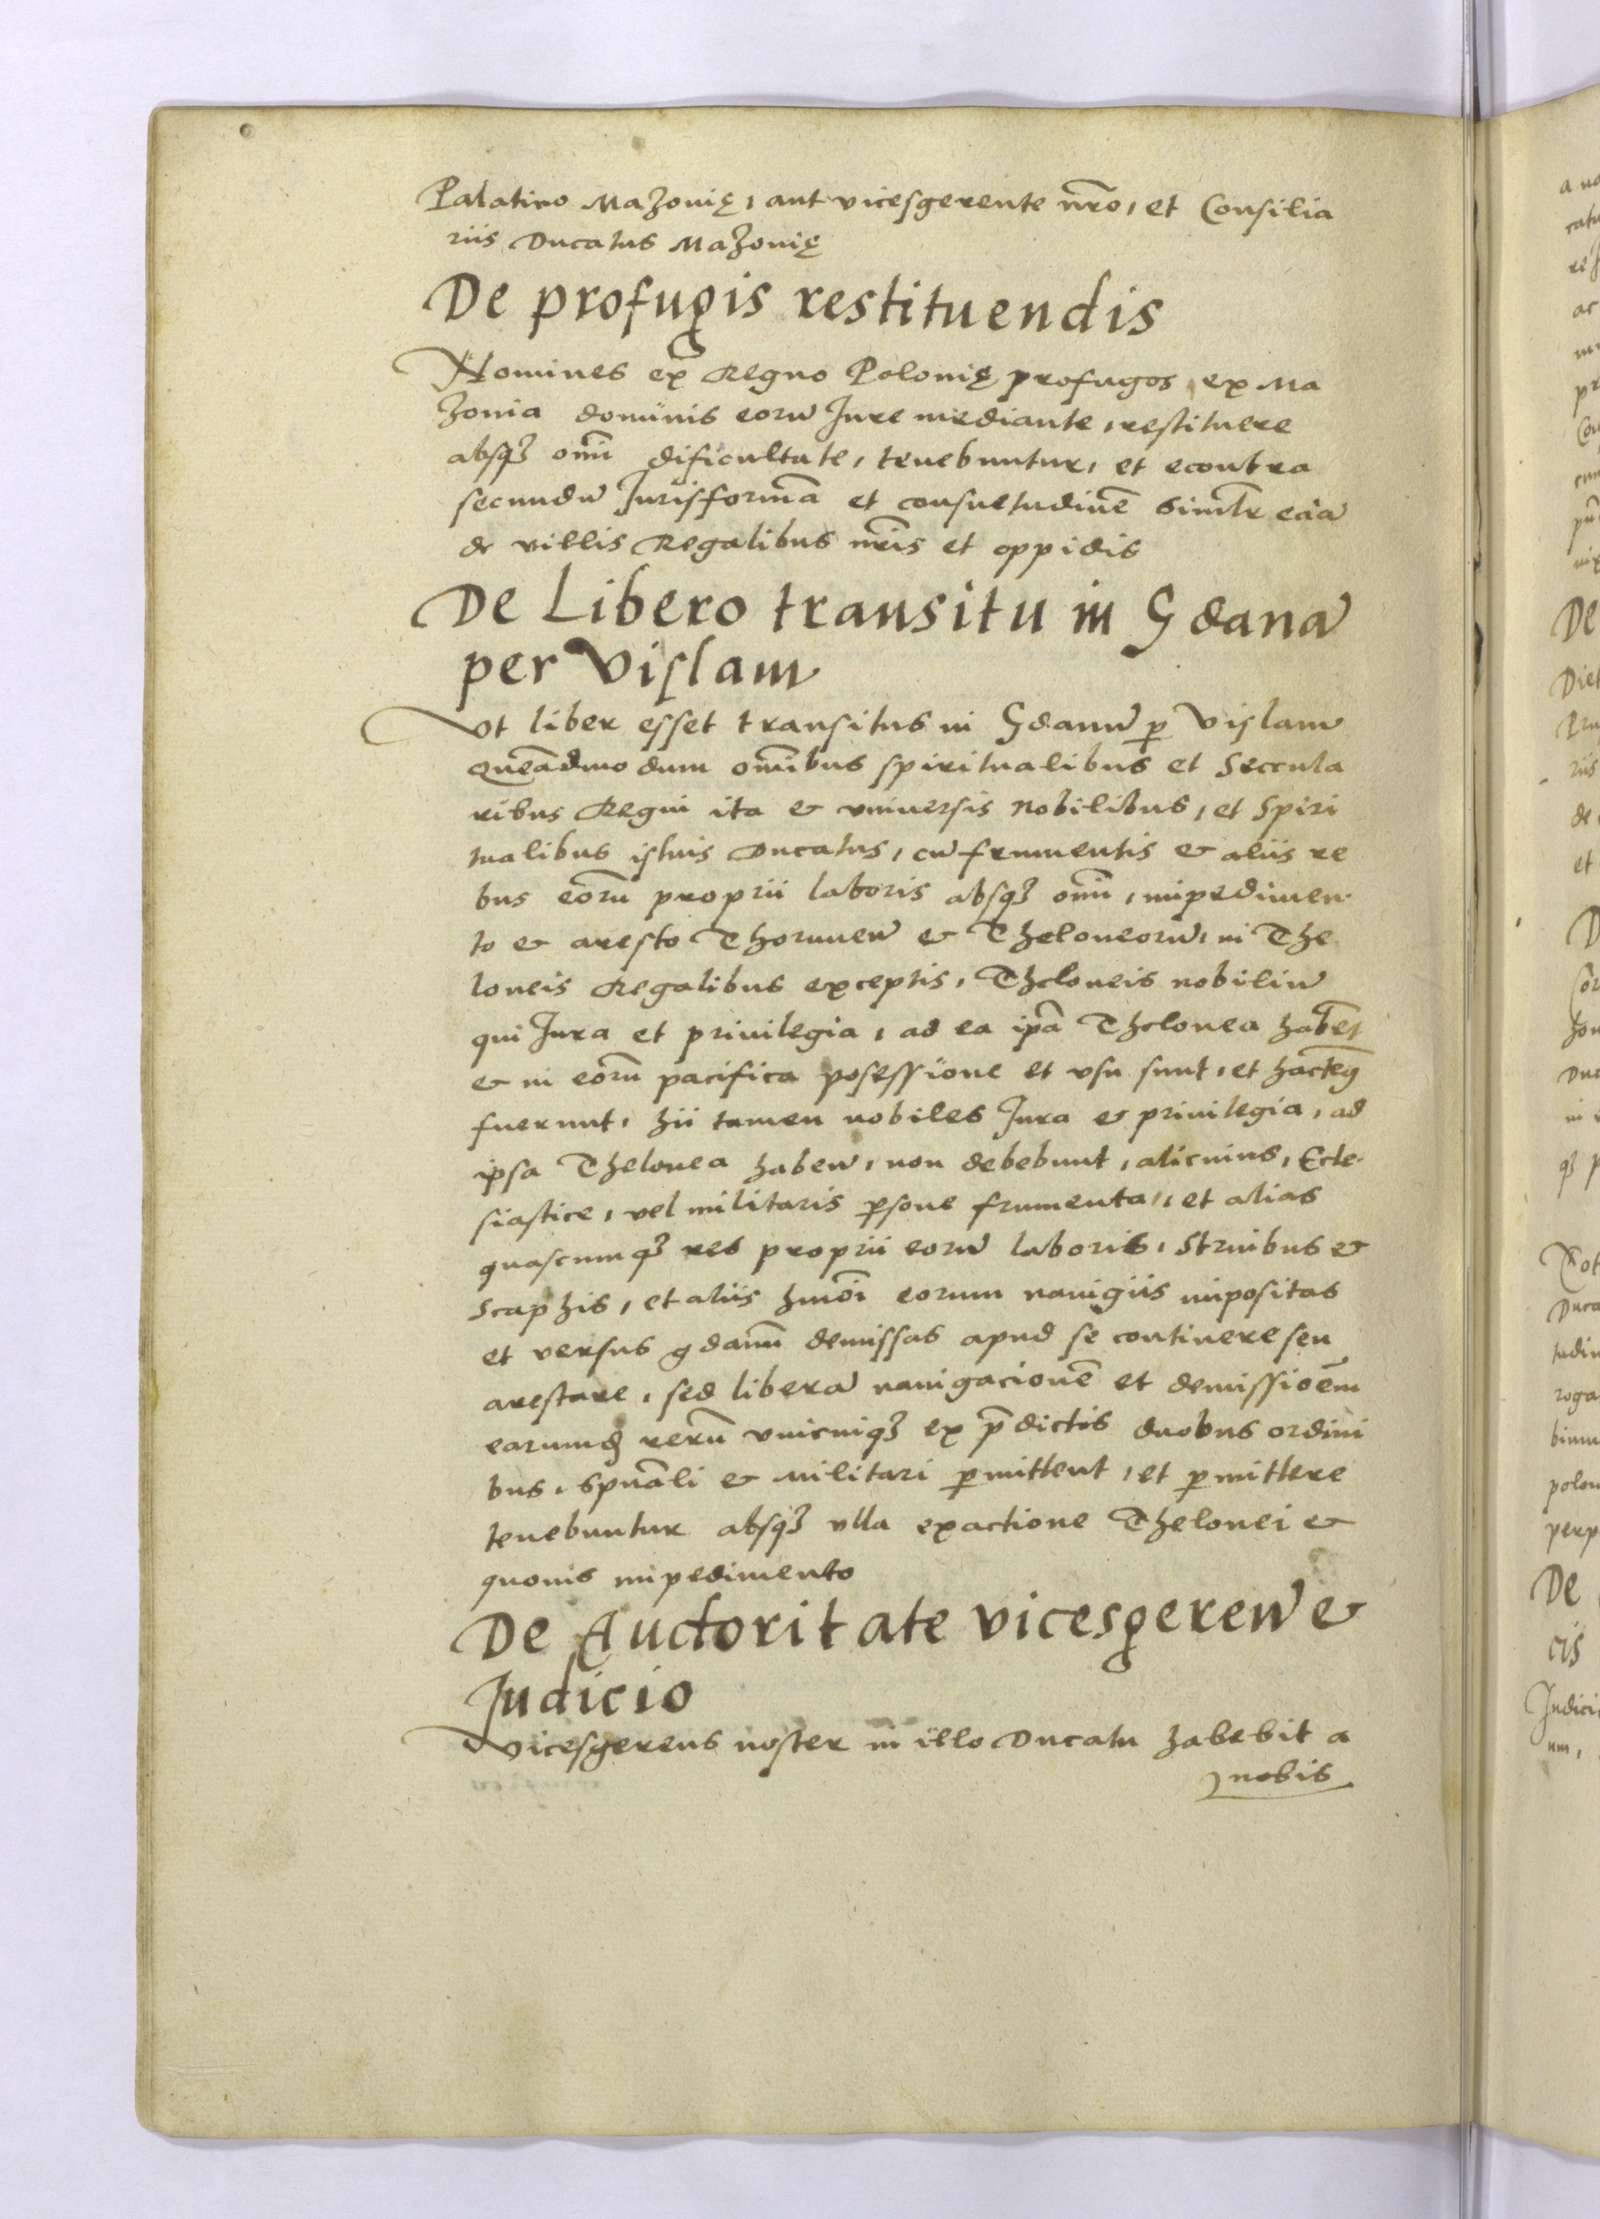 Palatino Mazonię, aut vicesgerente nr̄o, et Consilia
riis Ducatus Mazonię
De profugis restituendis
Homines ex Regno Polonię profugos, ex Ma
zonia dominis eorū Jure mediante, restituere
absq₃ om̄i dificultate, tenebuntur, et econtra
secundū Jurisformā et consuetudinē Simlr̄ eciā
de villis Regalibus nr̄is et oppidis
De Libero transitu in Gdanū
per Vislam
Vt liber esset transitus in Gdanū ꝑ Vislam
quēadmodum om̄ibus spiritualibus et Seccula
ribus Regni ita & vniuersis Nobilibus, et Spiri
tualibus istius Ducatus, cū frumentis & aliis re
bus eorū proprii laboris absq₃ om̄i, impedimen
to & aresto Thorunen̄ & Theloneorū, in The
loneis Regalibus exceptis, Theloneis nobiliū
qui Jura et priuilegia, ad ea ip̄a Thelonea habēt
& in eorū pacifica posessione et vsu sunt, et hactenꝰ
fuerunt, hii tamen nobiles Jura & priuilegia, ad
ipsa Thelonea haben̄, non debebunt, alicuius, Ecle-
siastice, vel militaris ꝑsone frumenta, et alias
quascumq₃ res proprii eorū laboris, Struibus &
Scaphis, et aliis hm̄oi eorum nauigiis impositas
et versus gdanū demissas apud se continere seu
arestare, sed liberā nauigacionē et demissioēm
earumd̄ rerū vnicuiq₃ ex p̄dictis duobus ordini
bus, Spūali & Militari ꝑmittent, et ꝑmittere
tenebuntur absq₃ vlla exactione Thelonei &
quouis impedimento
De Auctoritate vicesgeren̄ &
Judicio
Vicesgerens noster in illo Ducatu habebit a
nobis